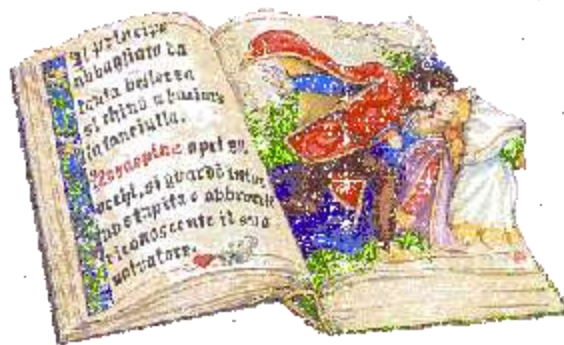 Il principe
abbagliato da
tanta bellezza
si chinò a baciare
la fanciulla.
Rosaspina aprì gli
occhi, si guardò intorno
stupita e abbracciò
riconoscente il suo
salvatore.